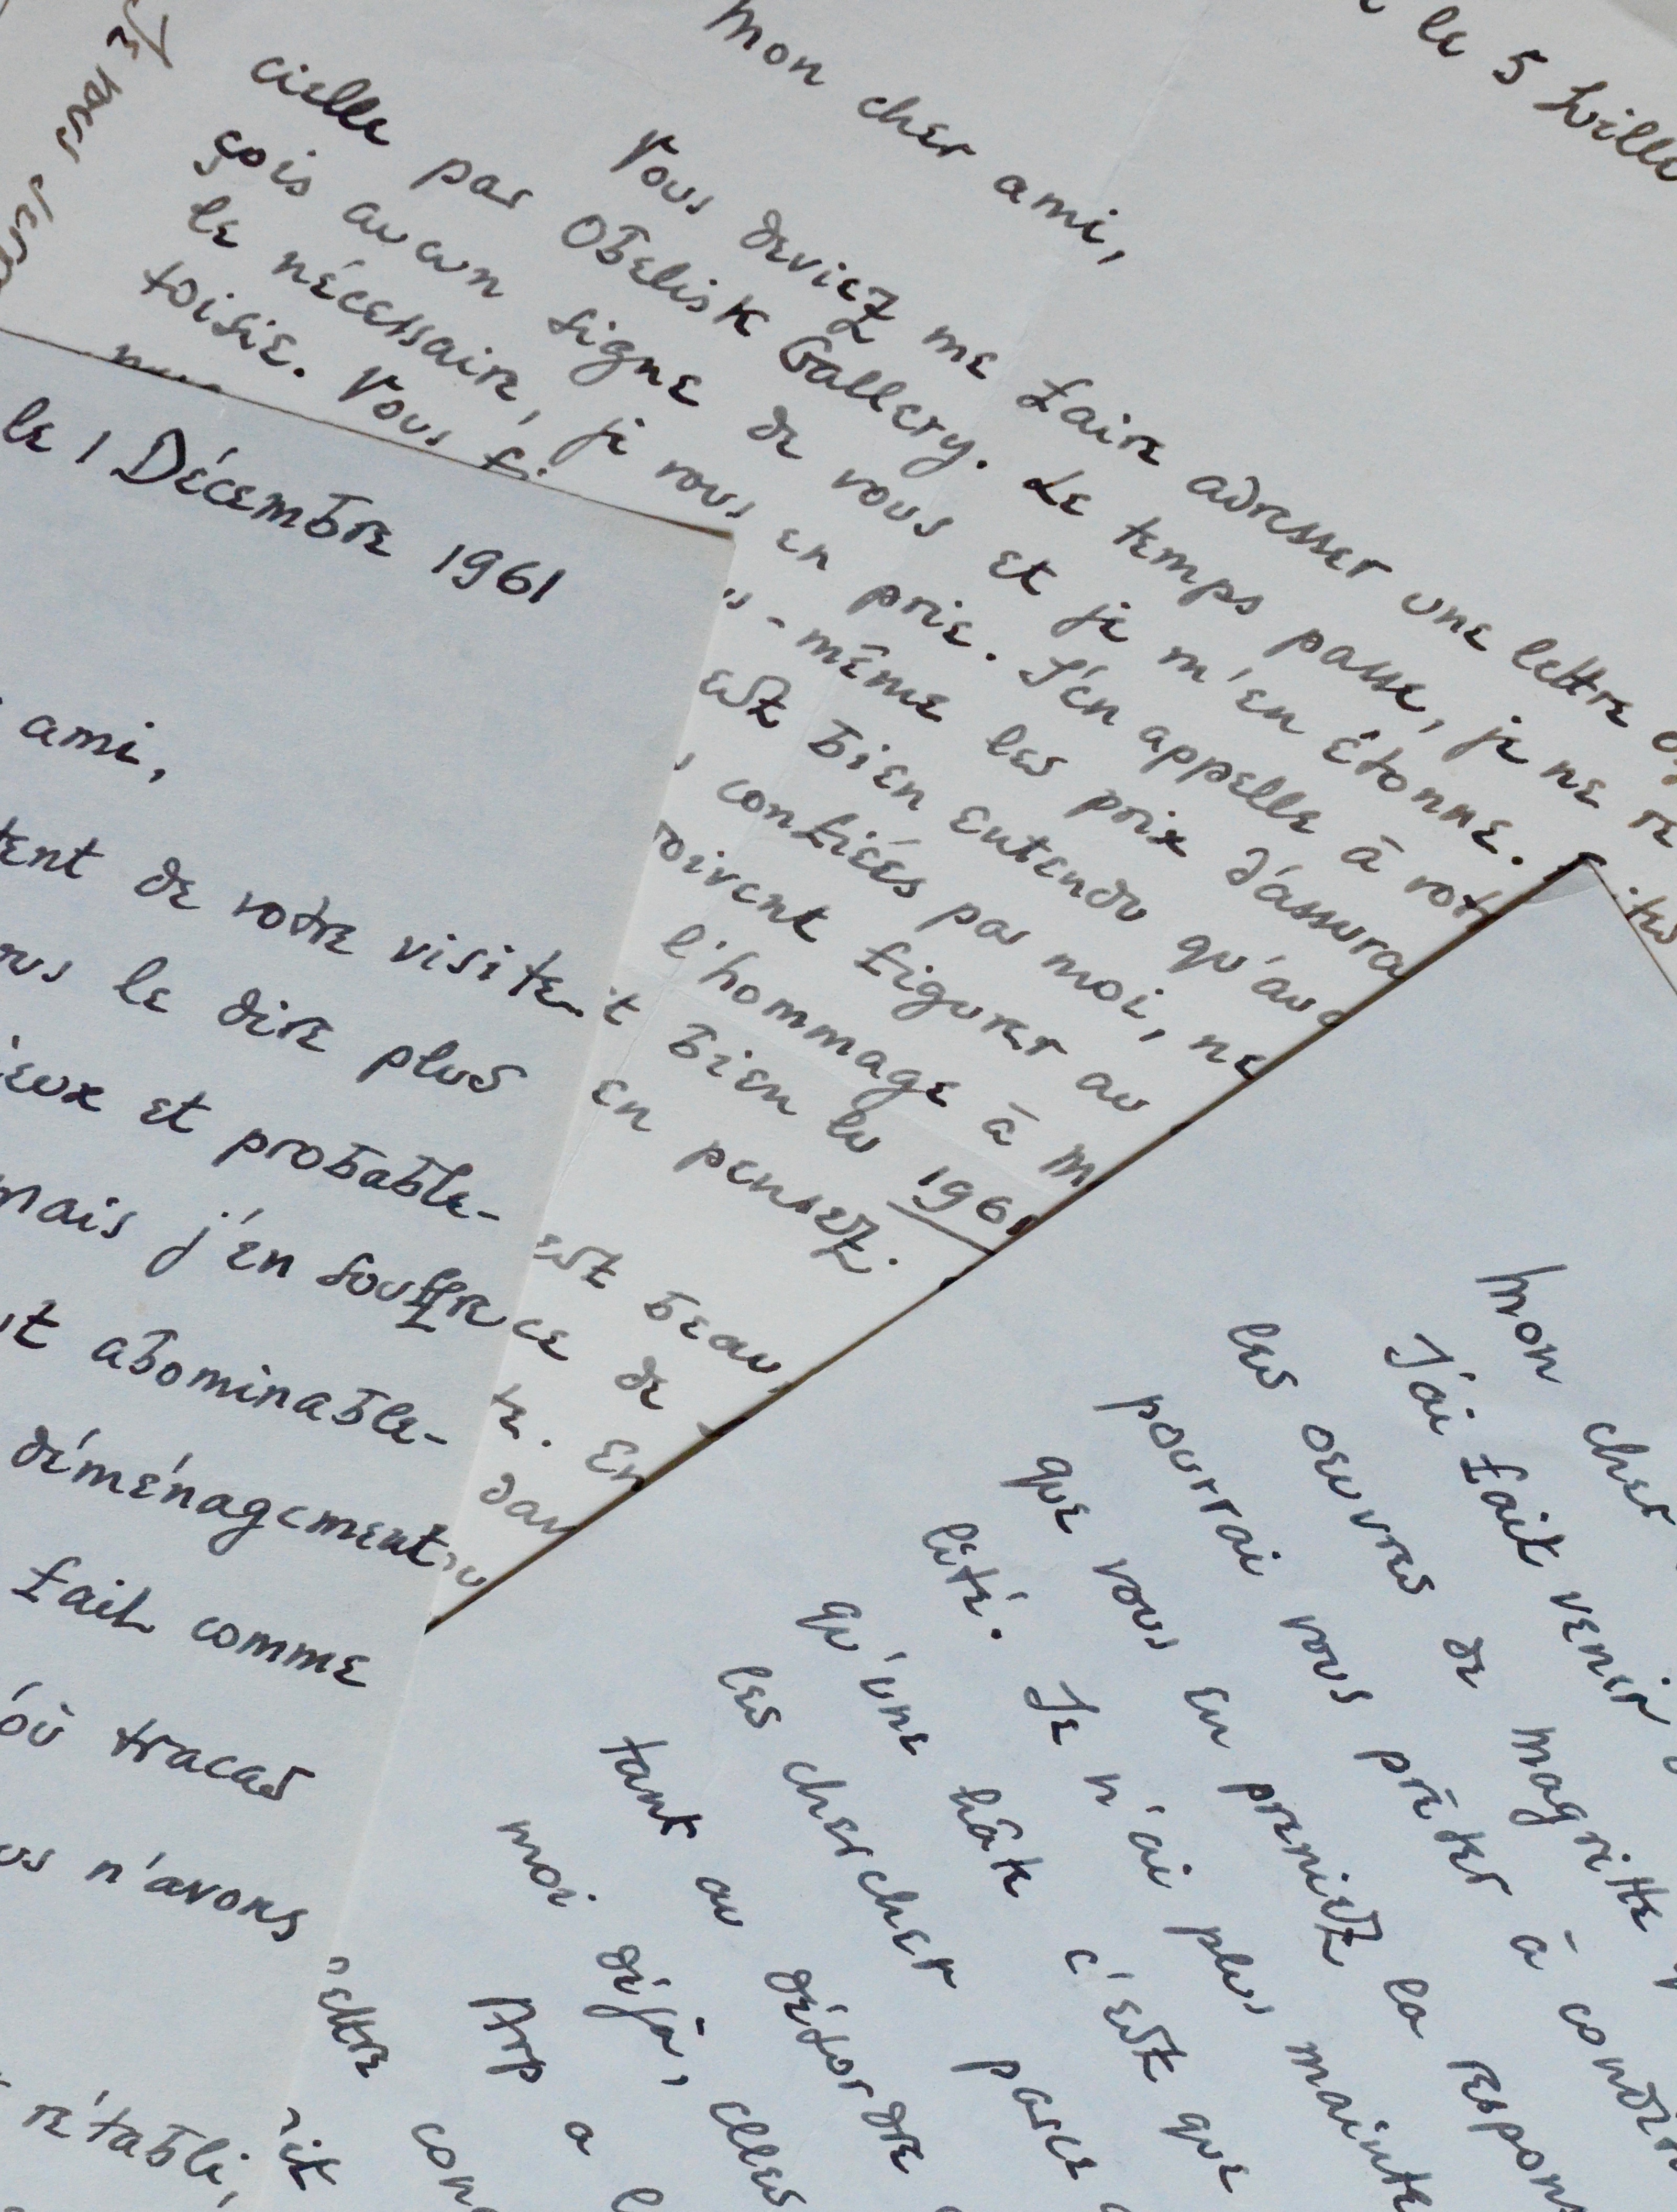 le 5
Mon cher ami,
Vous deviez me faire adresser une lettre
cielle par Obelisk Gallery. Le temps passe, je ne re
çois aucun signe de vous et je m'en étonne.
le nécessaire, je vous en prie. J'en appelle à vot
toisie. Vous
-même les prix d'assura
est bien entendu qu'auc
confiés par moi, ne
oivent figurer au
l'hommage à M
t bien lu 1961
en pensez.
est beau,
ce de
te. En
dan
le 1 Décembre 1961
ami,
tent de votre visite
ous le dire plus
ieux et probable-
mais j'en souffre
t abominable-
déménagement
fait comme
où tracas
us n'avons
rétabli,
Mon cher
J'ai fait venir
les oeuvres de Magritte
pourrai vous prêter à condi
que vous en preniez la respons
lité. Je n'ai plus mainte
qu'une hâte c'est que
les chercher parce
tant au désordre
moi déjà, elles
Arp a l
ettre con
it